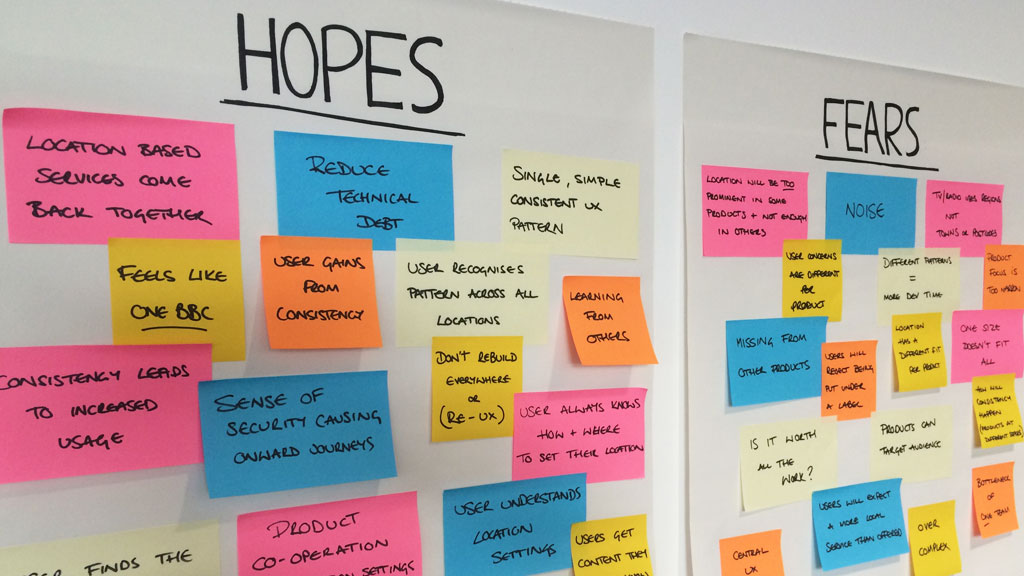 HOPES
LOCATION BASED
SERVICES COME
BACK TOGETHER
REDUCE
TECHNICAL
DEBT
SINGLE, SIMPLE
CONSISTENT UX
PATTERN
FEELS LIKE
ONE BBC
USER GAINS
FROM
CONSISTENCY
USER RECOGNISES
PATTERN ACROSS ALL
LOCATIONS
LEARNING
FROM
OTHERS
CONSISTENCY LEADS
TO INCREASED
USAGE
SENSE OF
SECURITY CAUSING
ONWARD JOURNEYS
DON'T REBUILD
EVERYWHERE
OR
(RE-UX)
USER ALWAYS KNOWS
HOW + WHERE
TO SET THEIR LOCATION
FINDS THE
PRODUCT
CO-OPERATION
SETTINGS
USER UNDERSTANDS
LOCATION
SETTINGS
USERS GET
CONTENT THEY
FEARS
LOCATION WILL BE TOO
PROMINENT IN SOME
PRODUCTS + NOT ENOUGH
IN OTHERS
NOISE
TV/RADIO USES REGIONS
NOT
TOWNS OR POSTCODES
USER CONCERNS
ARE DIFFERENT
PER
PRODUCT
DIFFERENT PATTERNS
=
MORE DEV TIME
PRODUCT
FOCUS IS
TOO NARROW
MISSING FROM
OTHER PRODUCTS
USERS WILL
REJECT BEING
PUT UNDER
A LABEL
LOCATION
HAS A
DIFFERENT FIT
PER PRODUCT
ONE SIZE
DOESN'T FIT
ALL
HOW WILL
CONSISTENCY
HAPPEN
(PRODUCTS AT
DIFFERENT
IS IT WORTH
ALL THE
WORK?
PRODUCTS CAN
TARGET AUDIENCE
BOTTLENECK
OF
ONE TEAM
USERS WILL EXPECT
A MORE LOCAL
SERVICE THAN OFFERED
OVER
COMPLEX
CENTRAL
UX